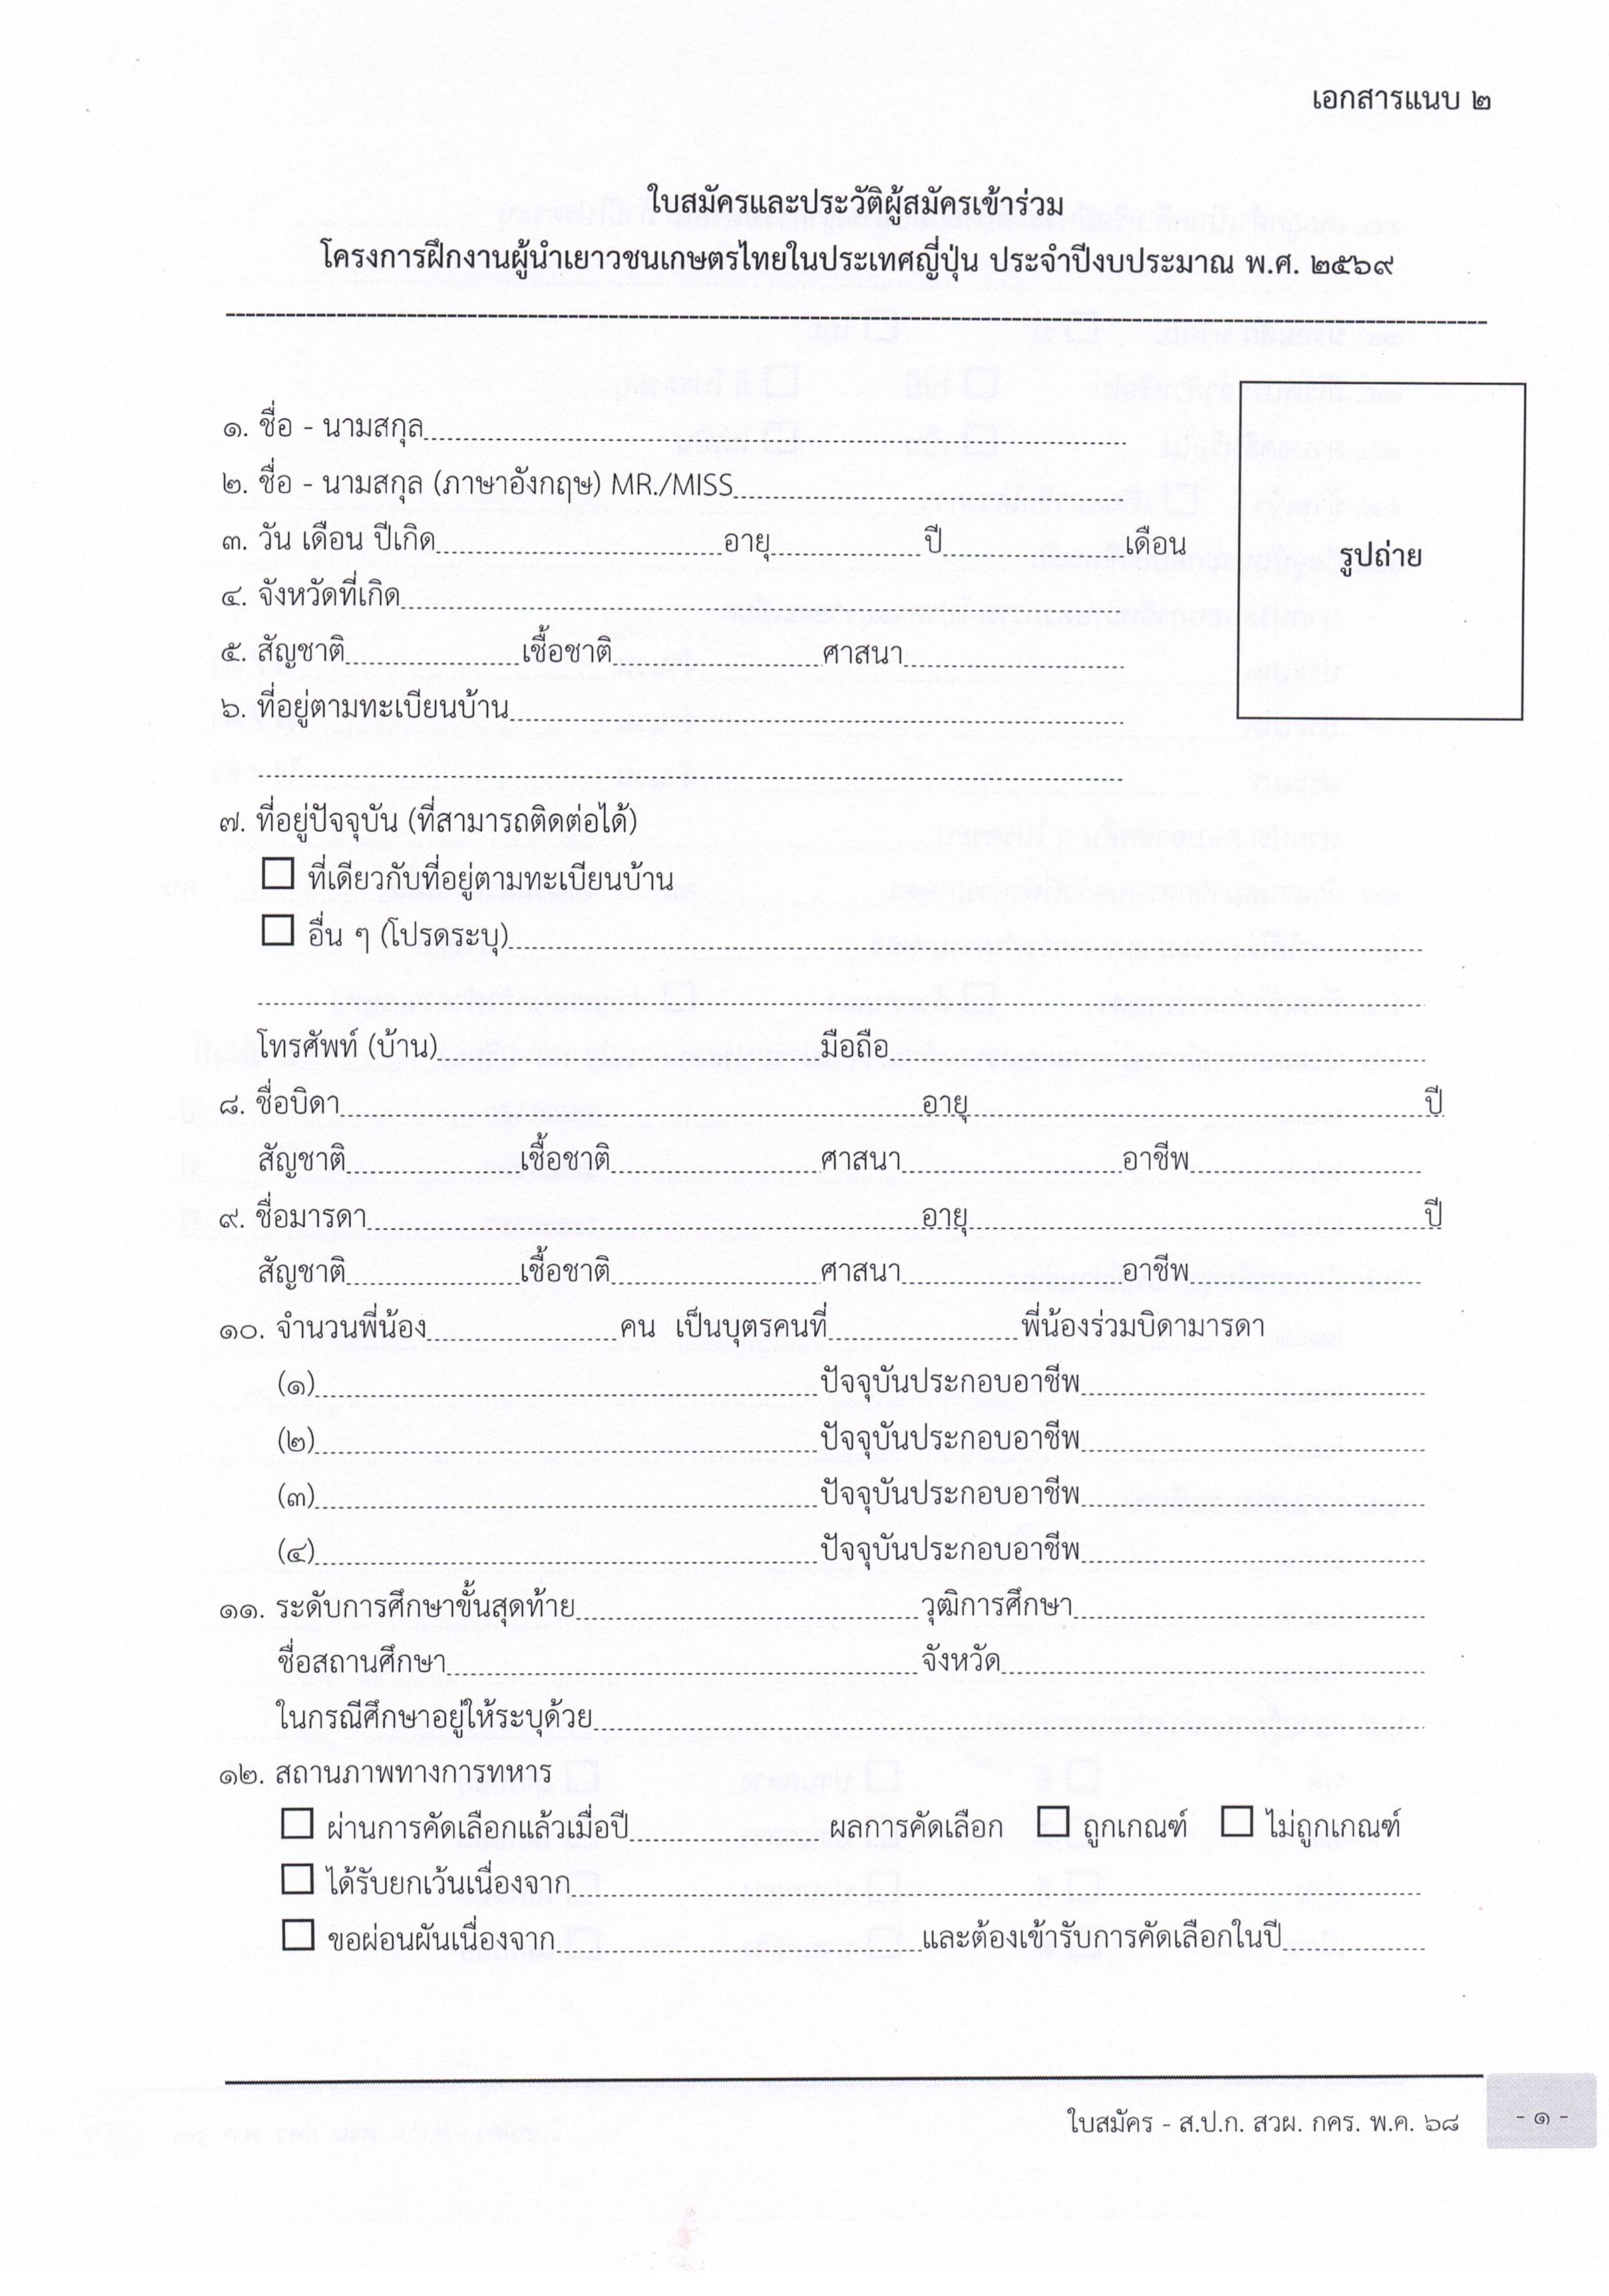 เอกสารแนบ ๒
ใบสมัครและประวัติผู้สมัครเข้าร่วม
โครงการฝึกงานผู้นำเยาวชนเกษตรไทยในประเทศญี่ปุ่น ประจำปีงบประมาณ พ.ศ. ๒๕๖๙
รูปถ่าย
๑. ชื่อ - นามสกุล
๒. ชื่อ - นามสกุล (ภาษาอังกฤษ) MR./MISS
๓. วัน เดือน ปีเกิด อายุ ปี เดือน
๔. จังหวัดที่เกิด
๕. สัญชาติ เชื้อชาติ ศาสนา
๖. ที่อยู่ตามทะเบียนบ้าน
๗. ที่อยู่ปัจจุบัน (ที่สามารถติดต่อได้)
ที่เดียวกับที่อยู่ตามทะเบียนบ้าน
อื่น ๆ (โปรดระบุ)
โทรศัพท์ (บ้าน) มือถือ
๘. ชื่อบิดา อายุ ปี
สัญชาติ เชื้อชาติ ศาสนา อาชีพ
๙. ชื่อมารดา อายุ ปี
สัญชาติ เชื้อชาติ ศาสนา อาชีพ
๑๐. จำนวนพี่น้อง คน เป็นบุตรคนที่ พี่น้องร่วมบิดามารดา
(๑) ปัจจุบันประกอบอาชีพ
(๒) ปัจจุบันประกอบอาชีพ
(๓) ปัจจุบันประกอบอาชีพ
(๔) ปัจจุบันประกอบอาชีพ
๑๑. ระดับการศึกษาขั้นสุดท้าย วุฒิการศึกษา
ชื่อสถานศึกษา จังหวัด
ในกรณีศึกษาอยู่ให้ระบุด้วย
๑๒. สถานภาพทางการทหาร
ผ่านการคัดเลือกแล้วเมื่อปี ผลการคัดเลือก ถูกเกณฑ์ ไม่ถูกเกณฑ์
ได้รับยกเว้นเนื่องจาก
ขอผ่อนผันเนื่องจาก และต้องเข้ารับการคัดเลือกในปี
ใบสมัคร - ส.ป.ก. สวผ. กคร. พ.ค. ๖๘
- ๑ -